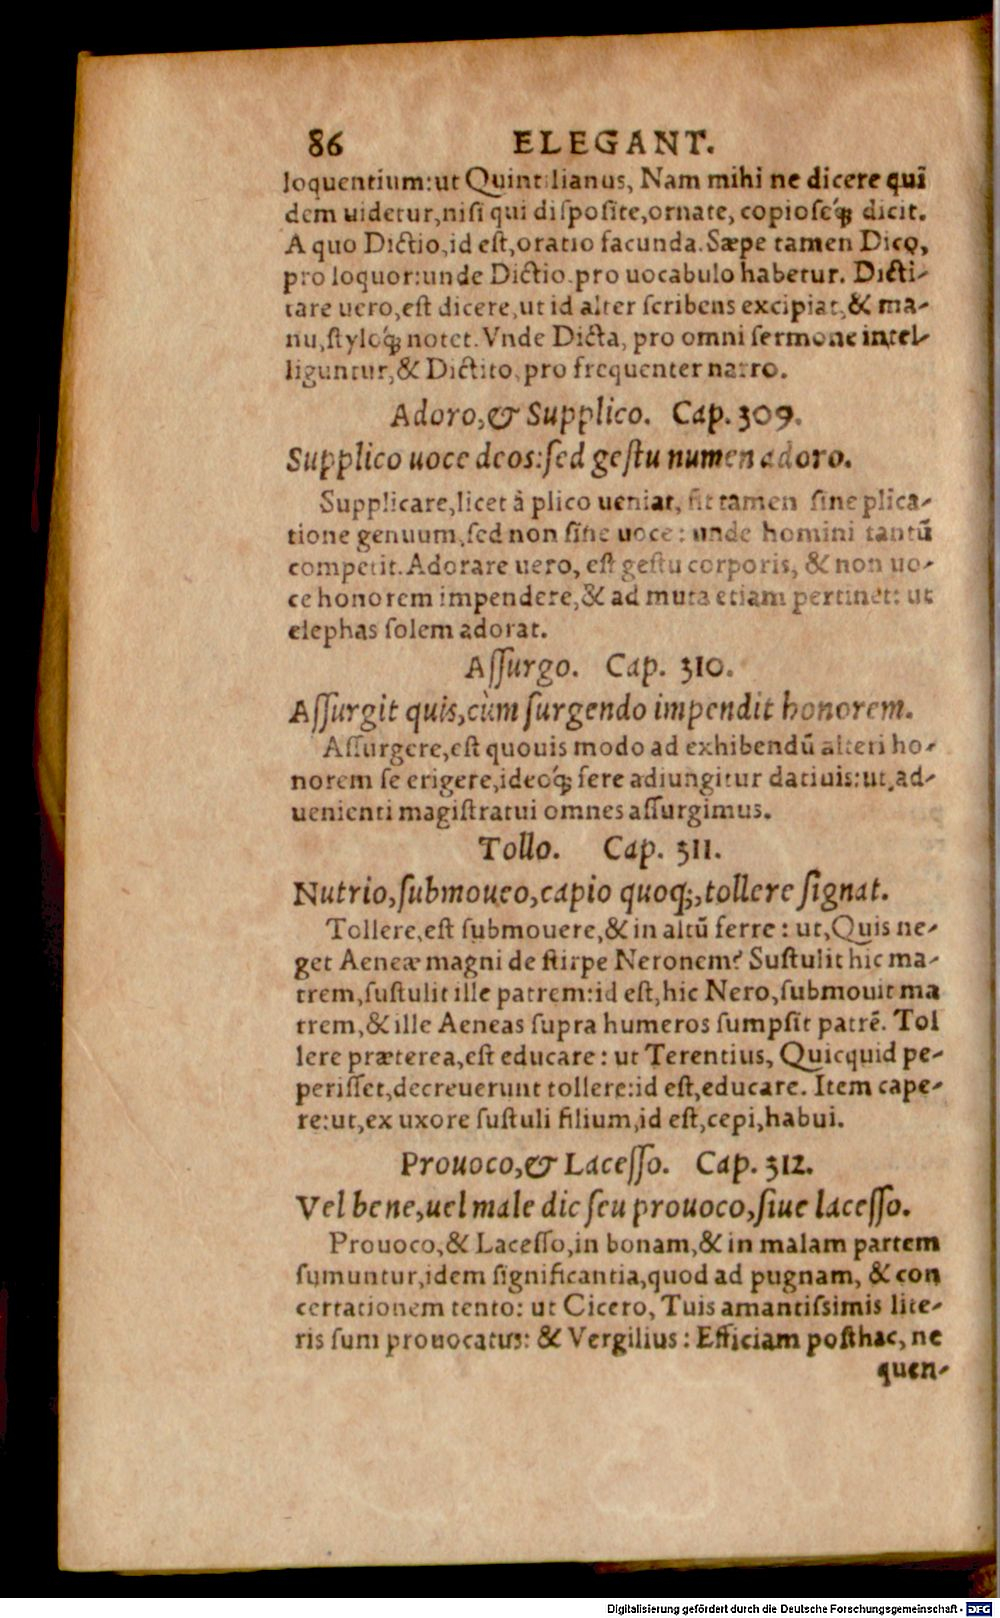 86 ELEGANT.
loquentium:ut Quintilianus, Nam mihi ne dicere quĩ
dem uidetur,nisi qui disposite,ornate, copioseq́; dicit.
A quo Dictio,id est,oratio facunda. Sæpe tamen Dico,
pro loquor:unde Dictio pro uocabulo habetur. Dicti-
tare uero,est dicere,ut id alter scribens excipiat,& ma-
nu,styloq́; notet. Vnde Dicta, pro omni sermone intel-
liguntur,& Dictito, pro frequenter narro.
Adoro,& Supplico. Cap. 309.
Supplico uoce deos:sed gestu numen adoro.
Supplicare,licet à plico ueniat, fit tamen sine plica-
tione genuum,sed non sine uoce: unde homini tantũ
competit. Adorare uero, est gestu corporis, & non uo-
ce honorem impendere,& ad muta etiam pertinet: ut
elephas solem adorat.
Assurgo. Cap. 310.
Assurgit quis,cùm surgendo impendit honorem.
Assurgere,est quouis modo ad exhibendũ alteri ho-
norem se erigere,ideoq́; fere adiungitur datiuis:ut,ad-
uenienti magistratui omnes assurgimus.
Tollo. Cap. 311.
Nutrio,submoueo,capio quoq;,tollere signat.
Tollere,est submouere,& in altũ ferre : ut,Quis ne-
get Aeneæ magni de stirpe Neronem? Sustulit hic ma-
trem,sustulit ille patrem:id est,hic Nero,submouit ma
trem,& ille Aeneas supra humeros sumpsit patrẽ. Tol
lere præterea,est educare : ut Terentius, Quicquid pe-
perisset,decreuerunt tollere:id est,educare. Item cape-
re:ut,ex uxore sustuli filium,id est,cepi,habui.
Prouoco,& Lacesso. Cap. 312.
Vel bene,uel male dic seu prouoco,siue lacesso.
Prouoco,& Lacesso,in bonam,& in malam partem
sumuntur,idem significantia,quod ad pugnam, & con
certationem tento: ut Cicero, Tuis amantissimis lite-
ris sum prouocatus: & Vergilius : Efficiam posthac, ne
quen-
Digitalisierung gefördert durch die Deutsche Forschungsgemeinschaft - DFG